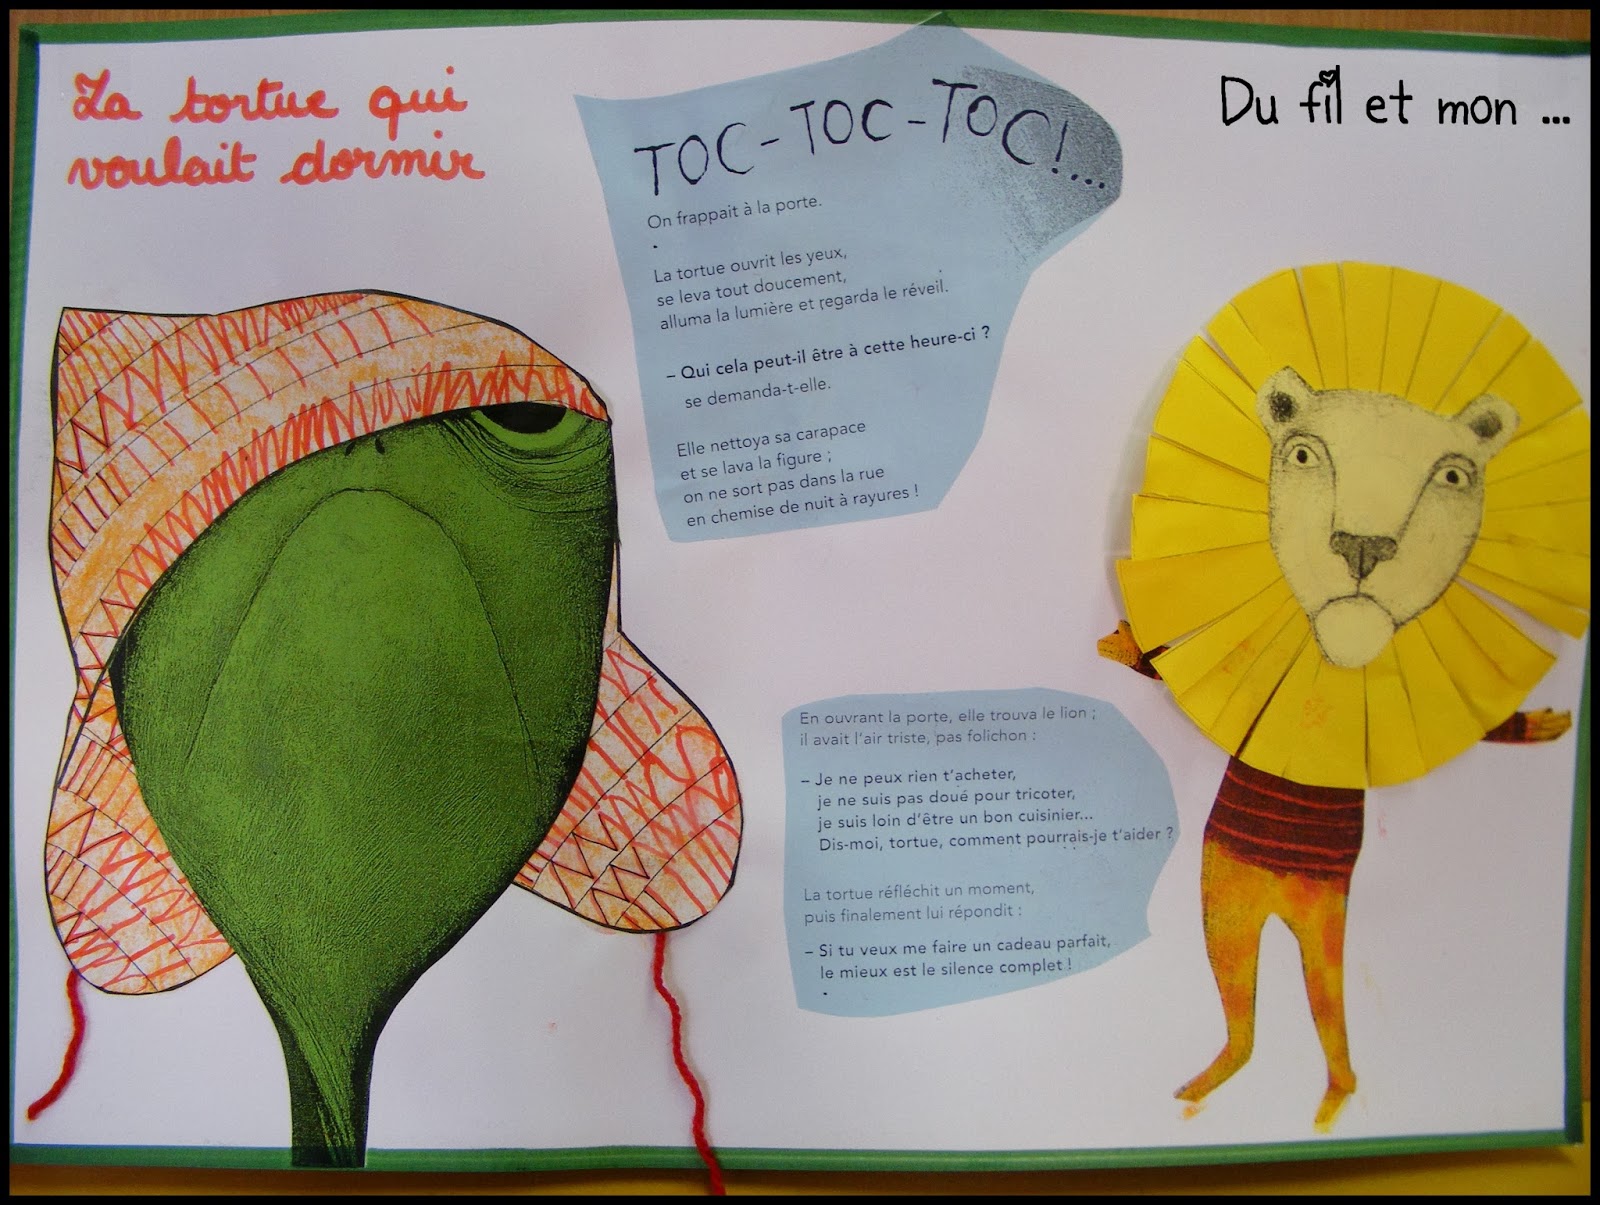 La tortue qui
voulait dormir
TOC-TOC-TOC!...
On frappait à la porte.
La tortue ouvrit les yeux,
se leva tout doucement,
alluma la lumière et regarda le réveil.
– Qui cela peut-il être à cette heure-ci ?
se demanda-t-elle.
Elle nettoya sa carapace
et se lava la figure ;
on ne sort pas dans la rue
en chemise de nuit à rayures !
Du fil et mon ...
En ouvrant la porte, elle trouva le lion ;
il avait l'air triste, pas folichon :
– Je ne peux rien t'acheter,
je ne suis pas doué pour tricoter,
je suis loin d'être un bon cuisinier...
Dis-moi, tortue, comment pourrais-je t'aider ?
La tortue réfléchit un moment,
puis finalement lui répondit :
– Si tu veux me faire un cadeau parfait,
le mieux est le silence complet !